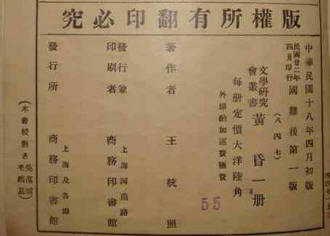 版權所有翻印必究
中華民國十八年四月初版
民國廿二年
四月印行
國難後第一版
(八四七)
文學研究
會叢書
黃昏一册
每册定價大洋陸角
外埠酌加運費匯費
著作者 王統照
發行兼
印刷者
上海河南路
商務印書館
發行所
上海及各埠
商務印書館
55